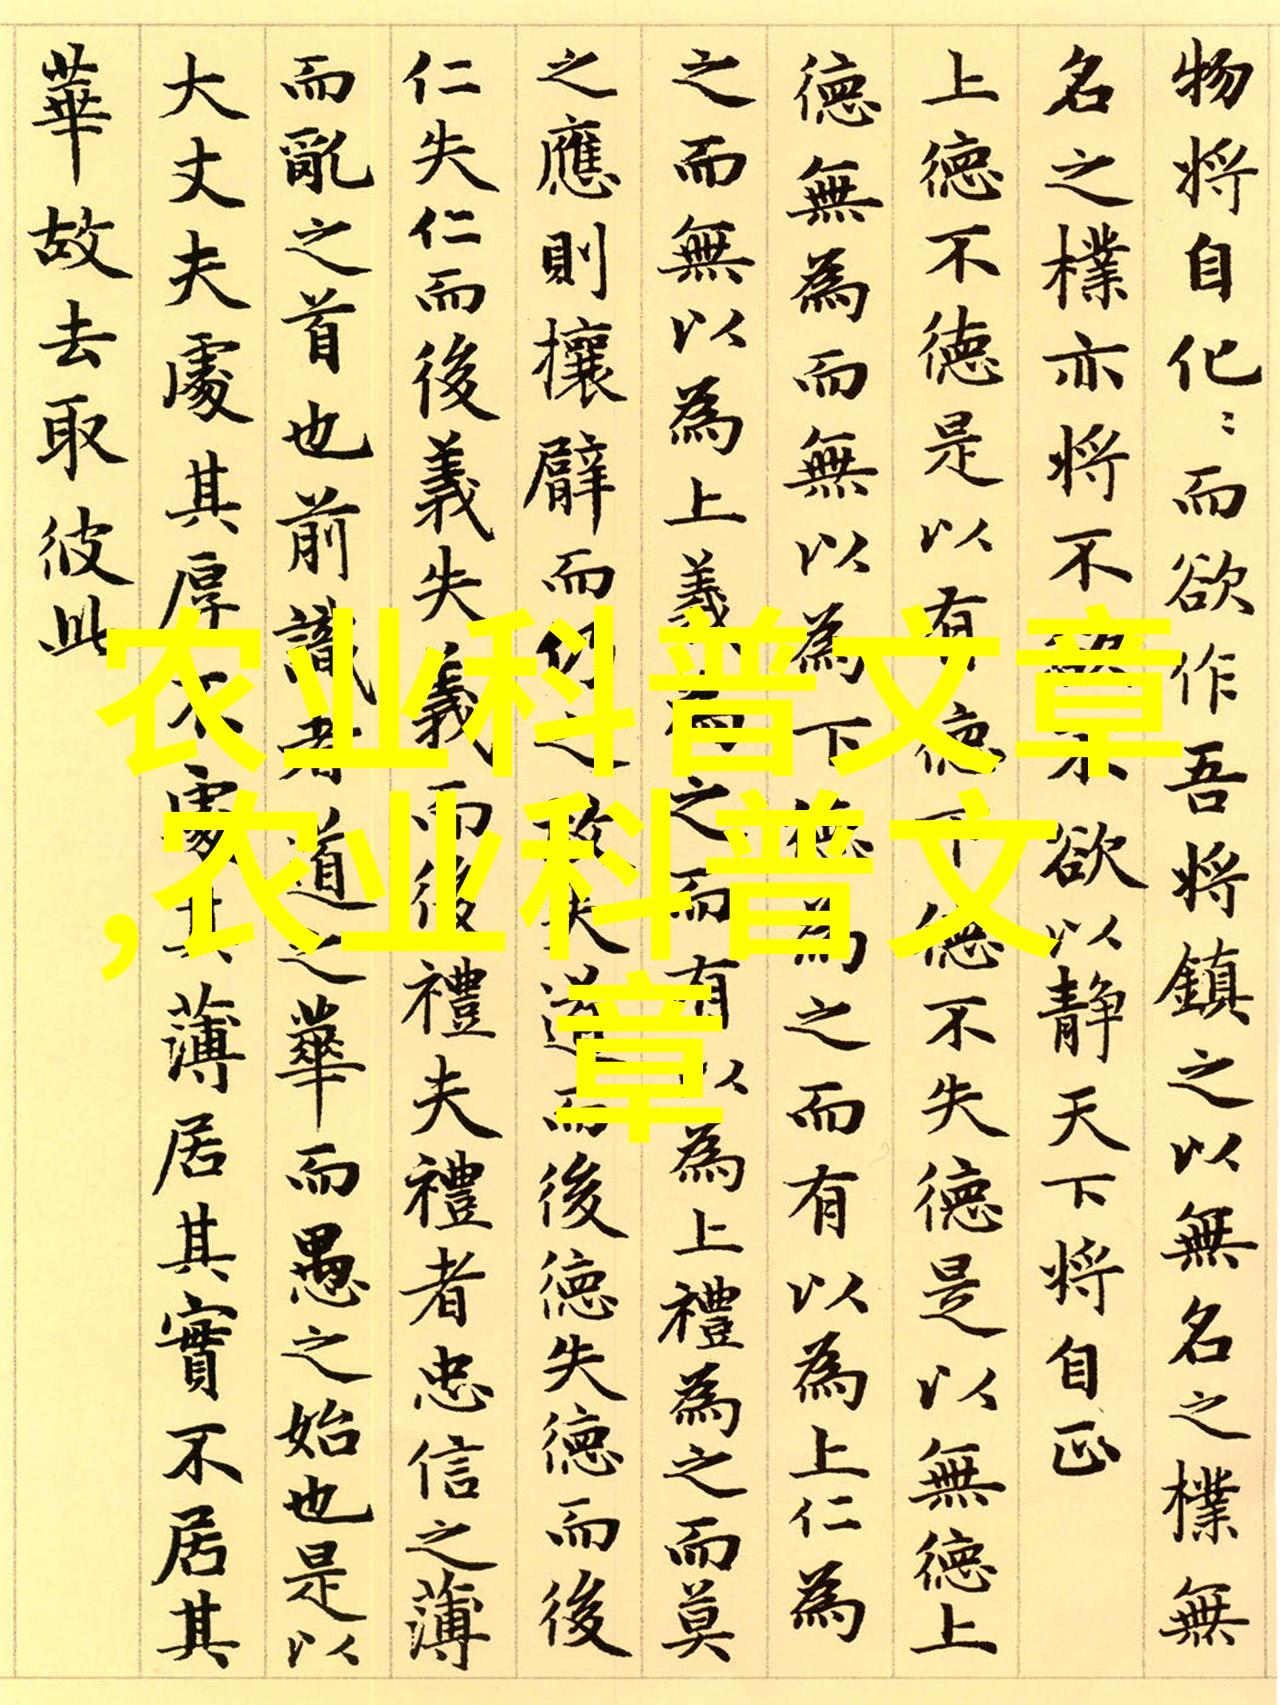 物将自化〻而欲作吾将鎮之以無名之樸無
名之樸亦将不欲不欲以静天下将自正
上徳不徳是以有徳下徳不失徳是以無徳上
徳無為而無以為下徳為之而有以為上仁為
之而無以為上義為之而有以為上禮為之而莫
之應則攘臂而仍之故失道而後徳失徳而後
仁失仁而後義失義而後禮夫禮者忠信之薄
而亂之首也前識者道之華而愚之始也是以
大丈夫處其厚不處其薄居其實不居其
華故去取彼此
农业科普文章
,农业科普文
章